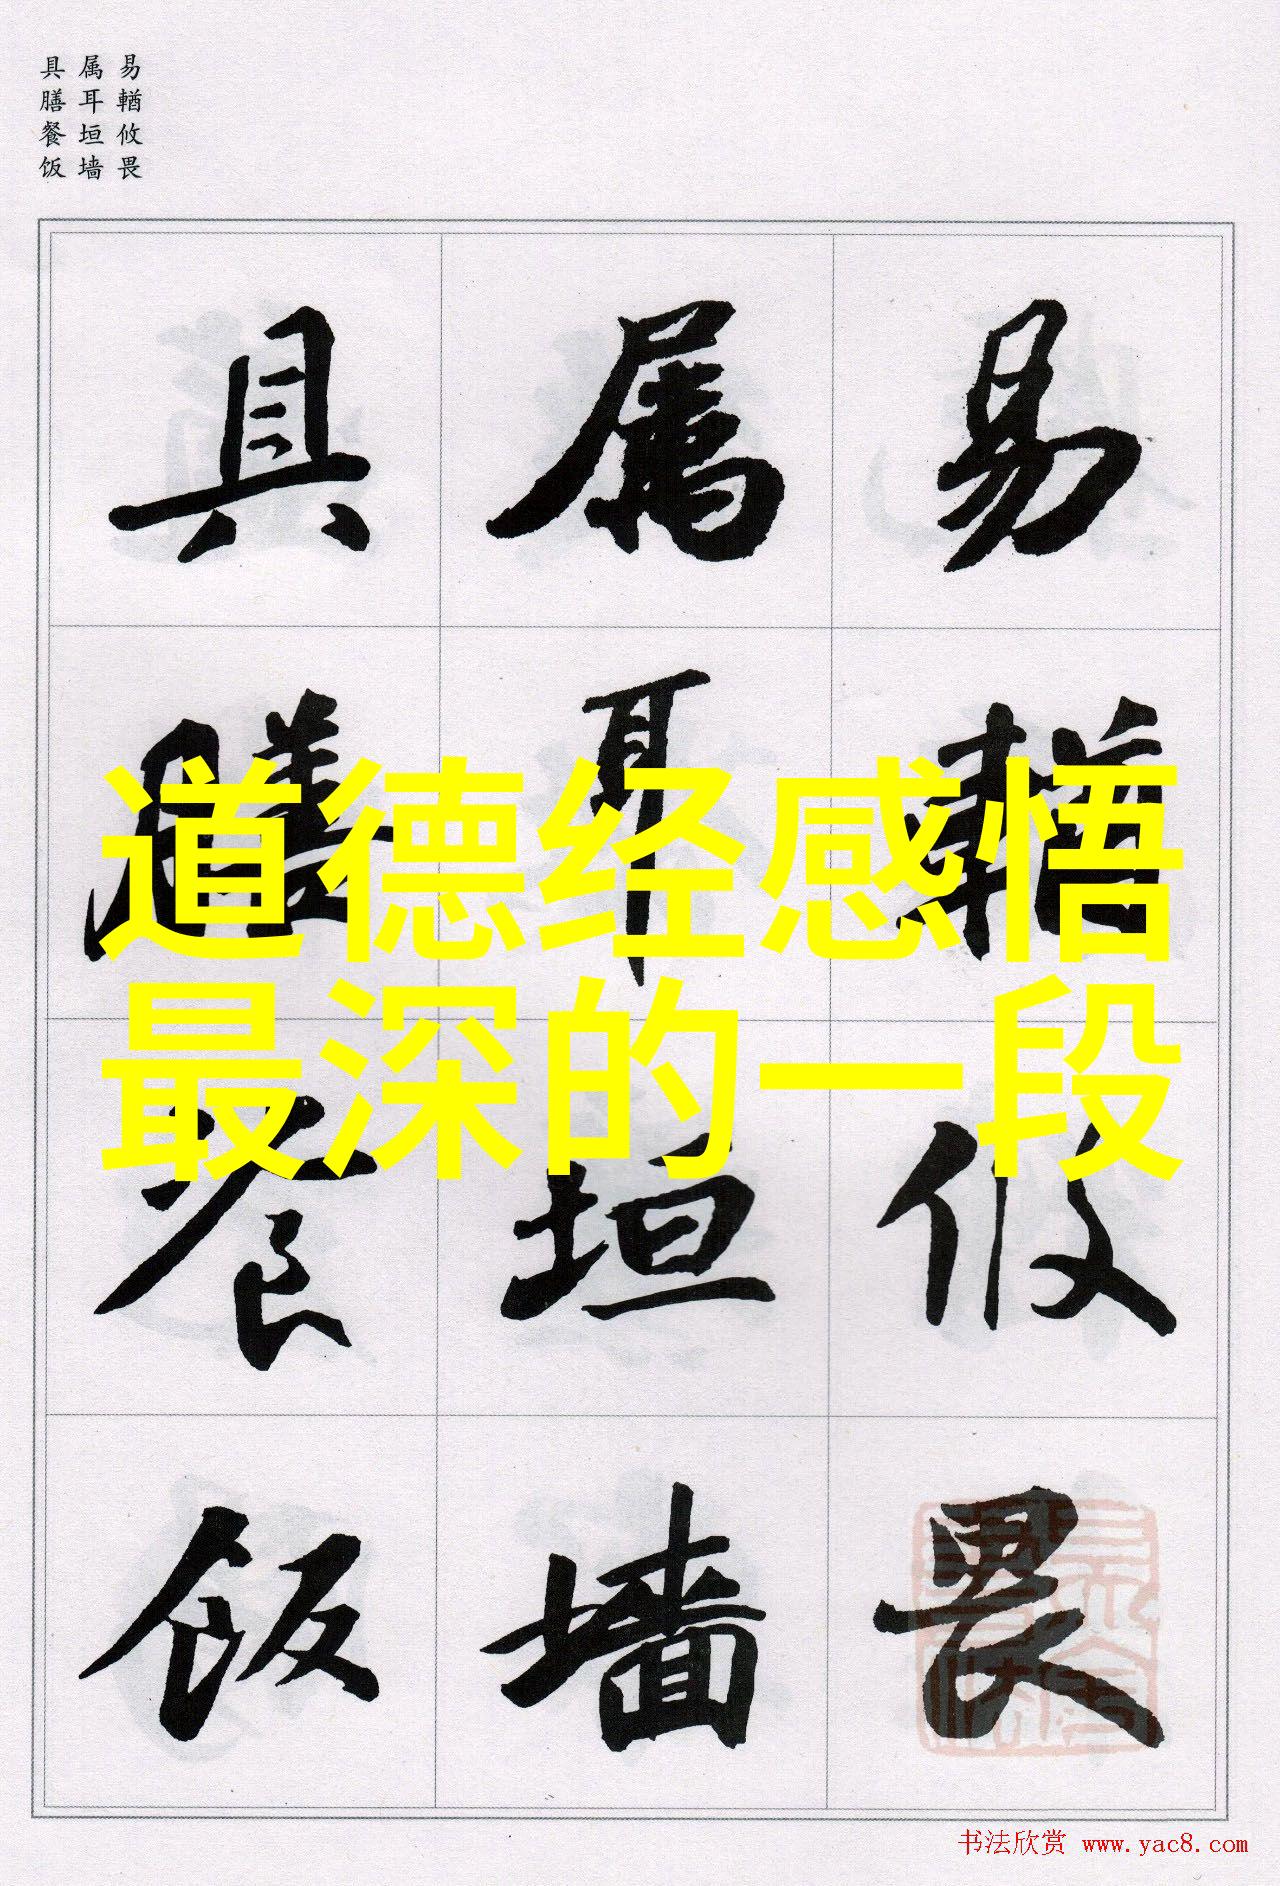 易輶攸畏
属耳垣墙
具膳餐饭
易輶攸畏
属耳垣墙
具膳餐饭
道德经感悟
最深的一段
书法欣赏 www.yac8.com